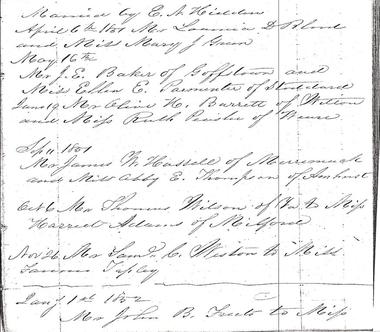 Married by E. N. Hidden
April 6th 1851 Mr Lourinia D Blood
and Miss Mary J Green
May 16th
Mr J. E. Baker of Goffstown and
Miss Ellen E. Parmenter of Stoddard
June 19 Mr Elivis H. Barrett of Wilton
and Miss Ruth of Weare
1851
Mr James W. Hassell of Merrimack
and Miss Abby E. Thompson of Amherst
Oct 6 Mr Thomas Wilson of to Miss
Harriet Adams of Milford
Nov 26 Mr Saml. C. Weston to Miss
Tapley
Jany 1st 1852
Mr John B. to Miss